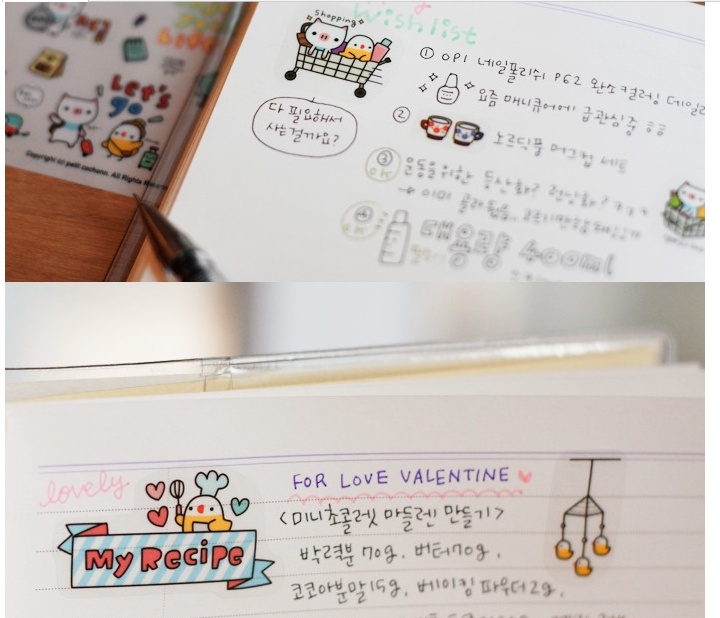 Let's
go
Copyright (c) petit cochon. All Rights
Shopping
Wishlist
다 필요해서
사는걸까요?
① OPI 네일폴리쉬 P62 완소컬러임
요즘 매니큐어에 급관심중
②
노르딕풍 머그컵 세트
③ 운동을 위한 등산화? 런닝화? ㅋㅋㅋ
OK
→ 이미
④
대용량 400ml
lovely
FOR LOVE VALENTINE
<미니초콜렛 마들렌 만들기>
My Recipe
박력분 70g, 버터70g,
코코아분말15g, 베이킹파우더2g,